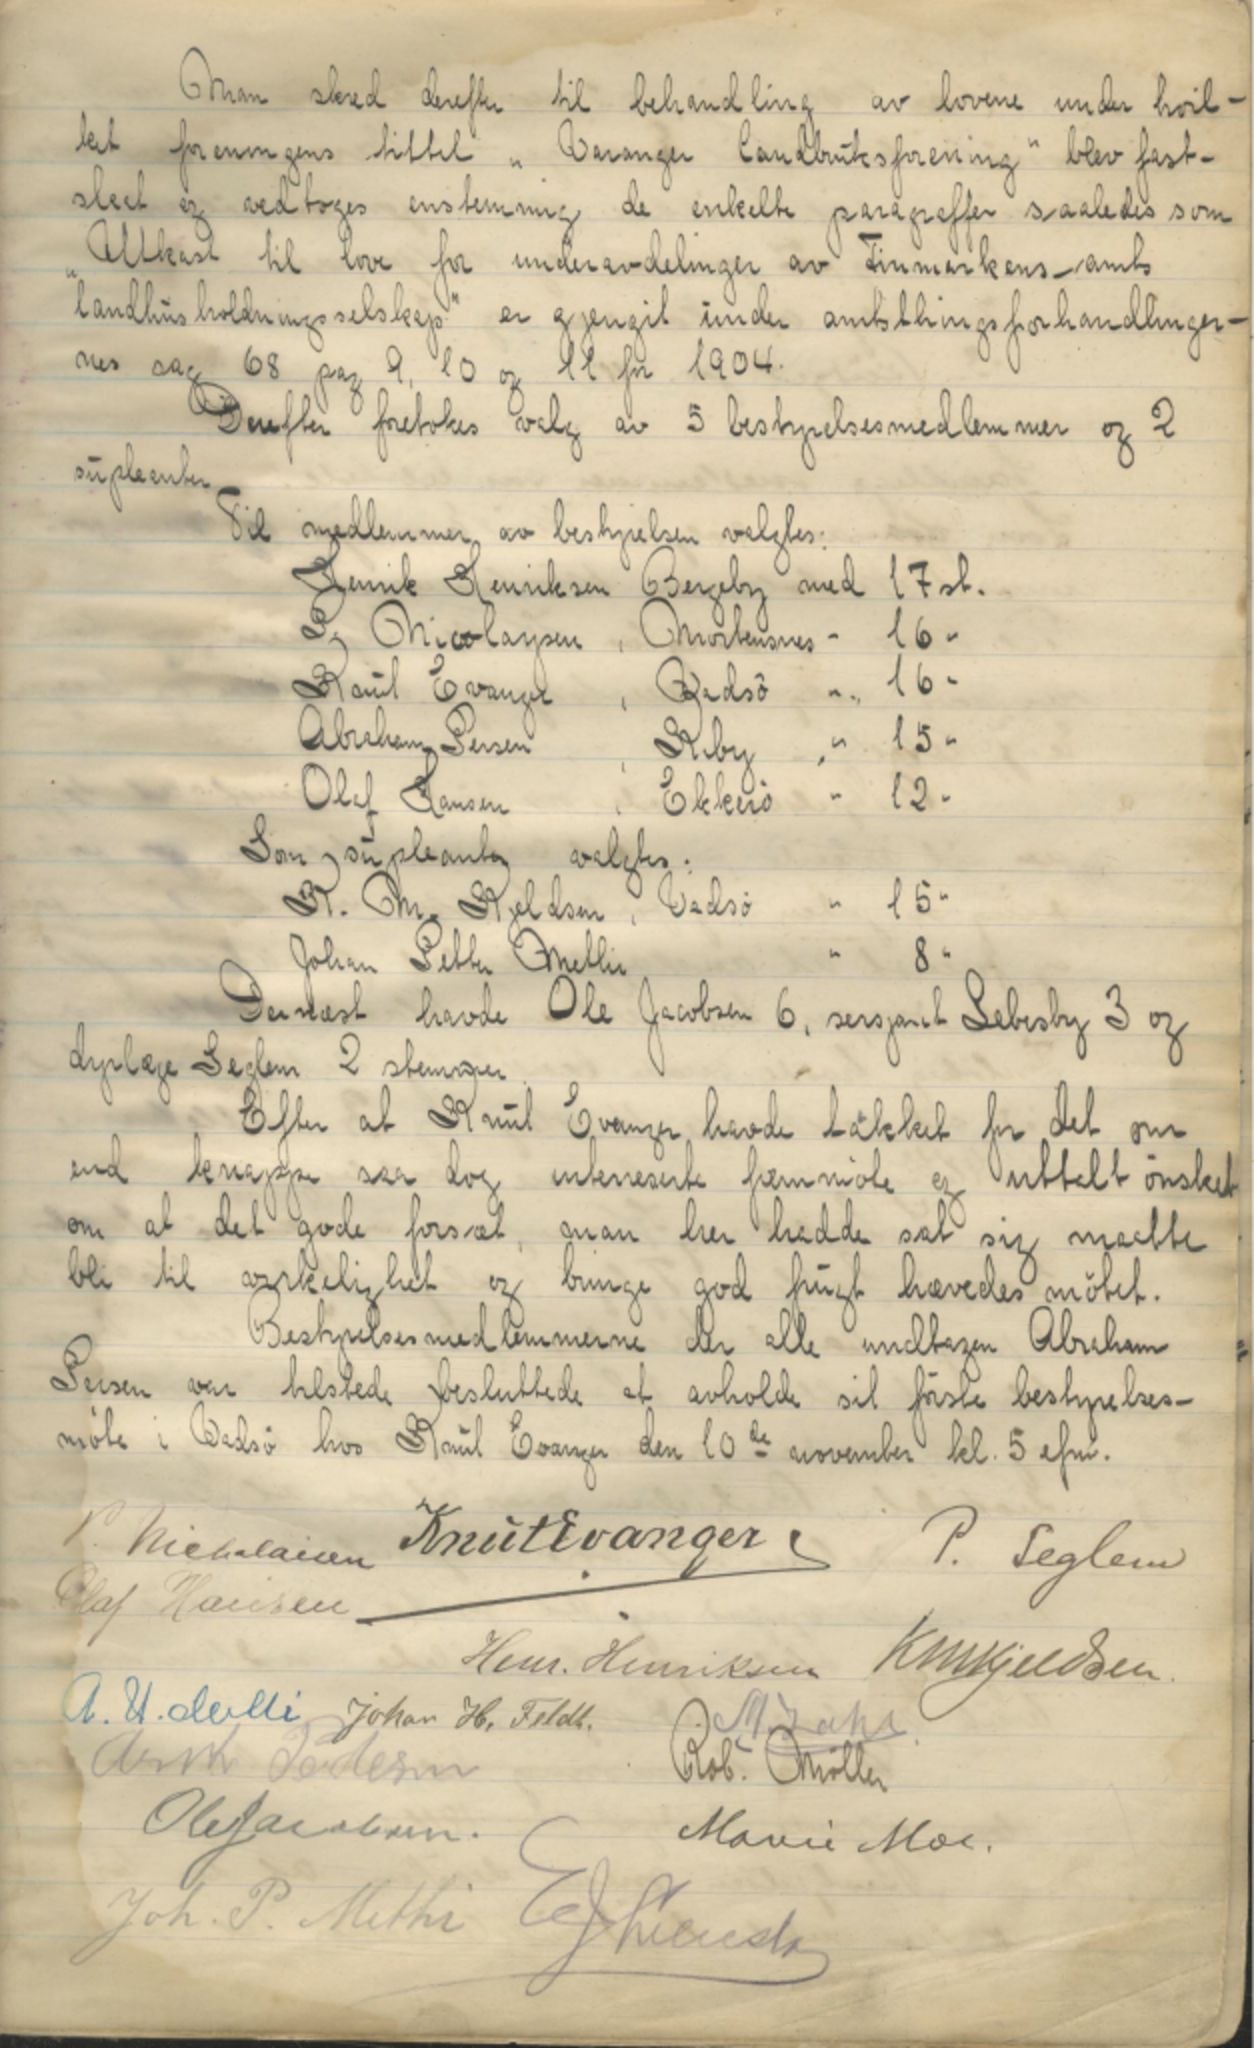 Man skred derefter til behandling av lovene under hvil-
ket foreningens tittel „Varanger landbruksforening" blev fast-
slaat og vedtoges enstemmig de enkelte paragraffer saaledes som
„Utkast til love for underavdelinger av Finmarkens amts
landhusholdningsselskap" er gjengit under amtsthingsforhandlinger-
nes sag 68 pag 9, 10 og 11 for 1904.
Derefter foretokes valg av 5 bestyrelsesmedlemmer og 2
supleanter
Til medlemmer av bestyrelsen valgtes:
Henrik Henriksen Bergeby med 17 st.
P. Nicolaysen, Mortensnes " 16 "
Knut Evanger, Vadsö " 16 "
Abraham Persen, Kiby " 15 "
Olaf Hansen, Ekkerö " 12 "
Som supleanter valgtes:
K. M. Kjeldsen, Vadsö " 15 "
Johan Petter Methi " 8 "
Dernæst havde Ole Jacobsen 6, sersjant Lebesby 3 og
dyrlæge Seglem 2 stemmer.
Efter at Knut Evanger havde takket for det om
end knappe saa dog interreserte fremmöte og uttalt önsket
om at det gode forsæt, man her hadde sat sig maatte
bli til virkelighet og bringe god frugt hævedes mötet.
Bestyrelsesmedlemmerne der alle undtagen Abraham
Persen var tilstede besluttede at avholde sit förste bestyrelses-
möte i Vadsö hos Knut Evanger den 10de november kl. 5 efm.
P. Nickolaisen Knut Evanger P. Seglem
Olaf Hansen
Henr. Henriksen KMKjeldsen.
A. U. Johan H. Feldt.
Pedersen Rob. Möller
Ole Jacobsen. Marie Moe.
Joh. P. Methi